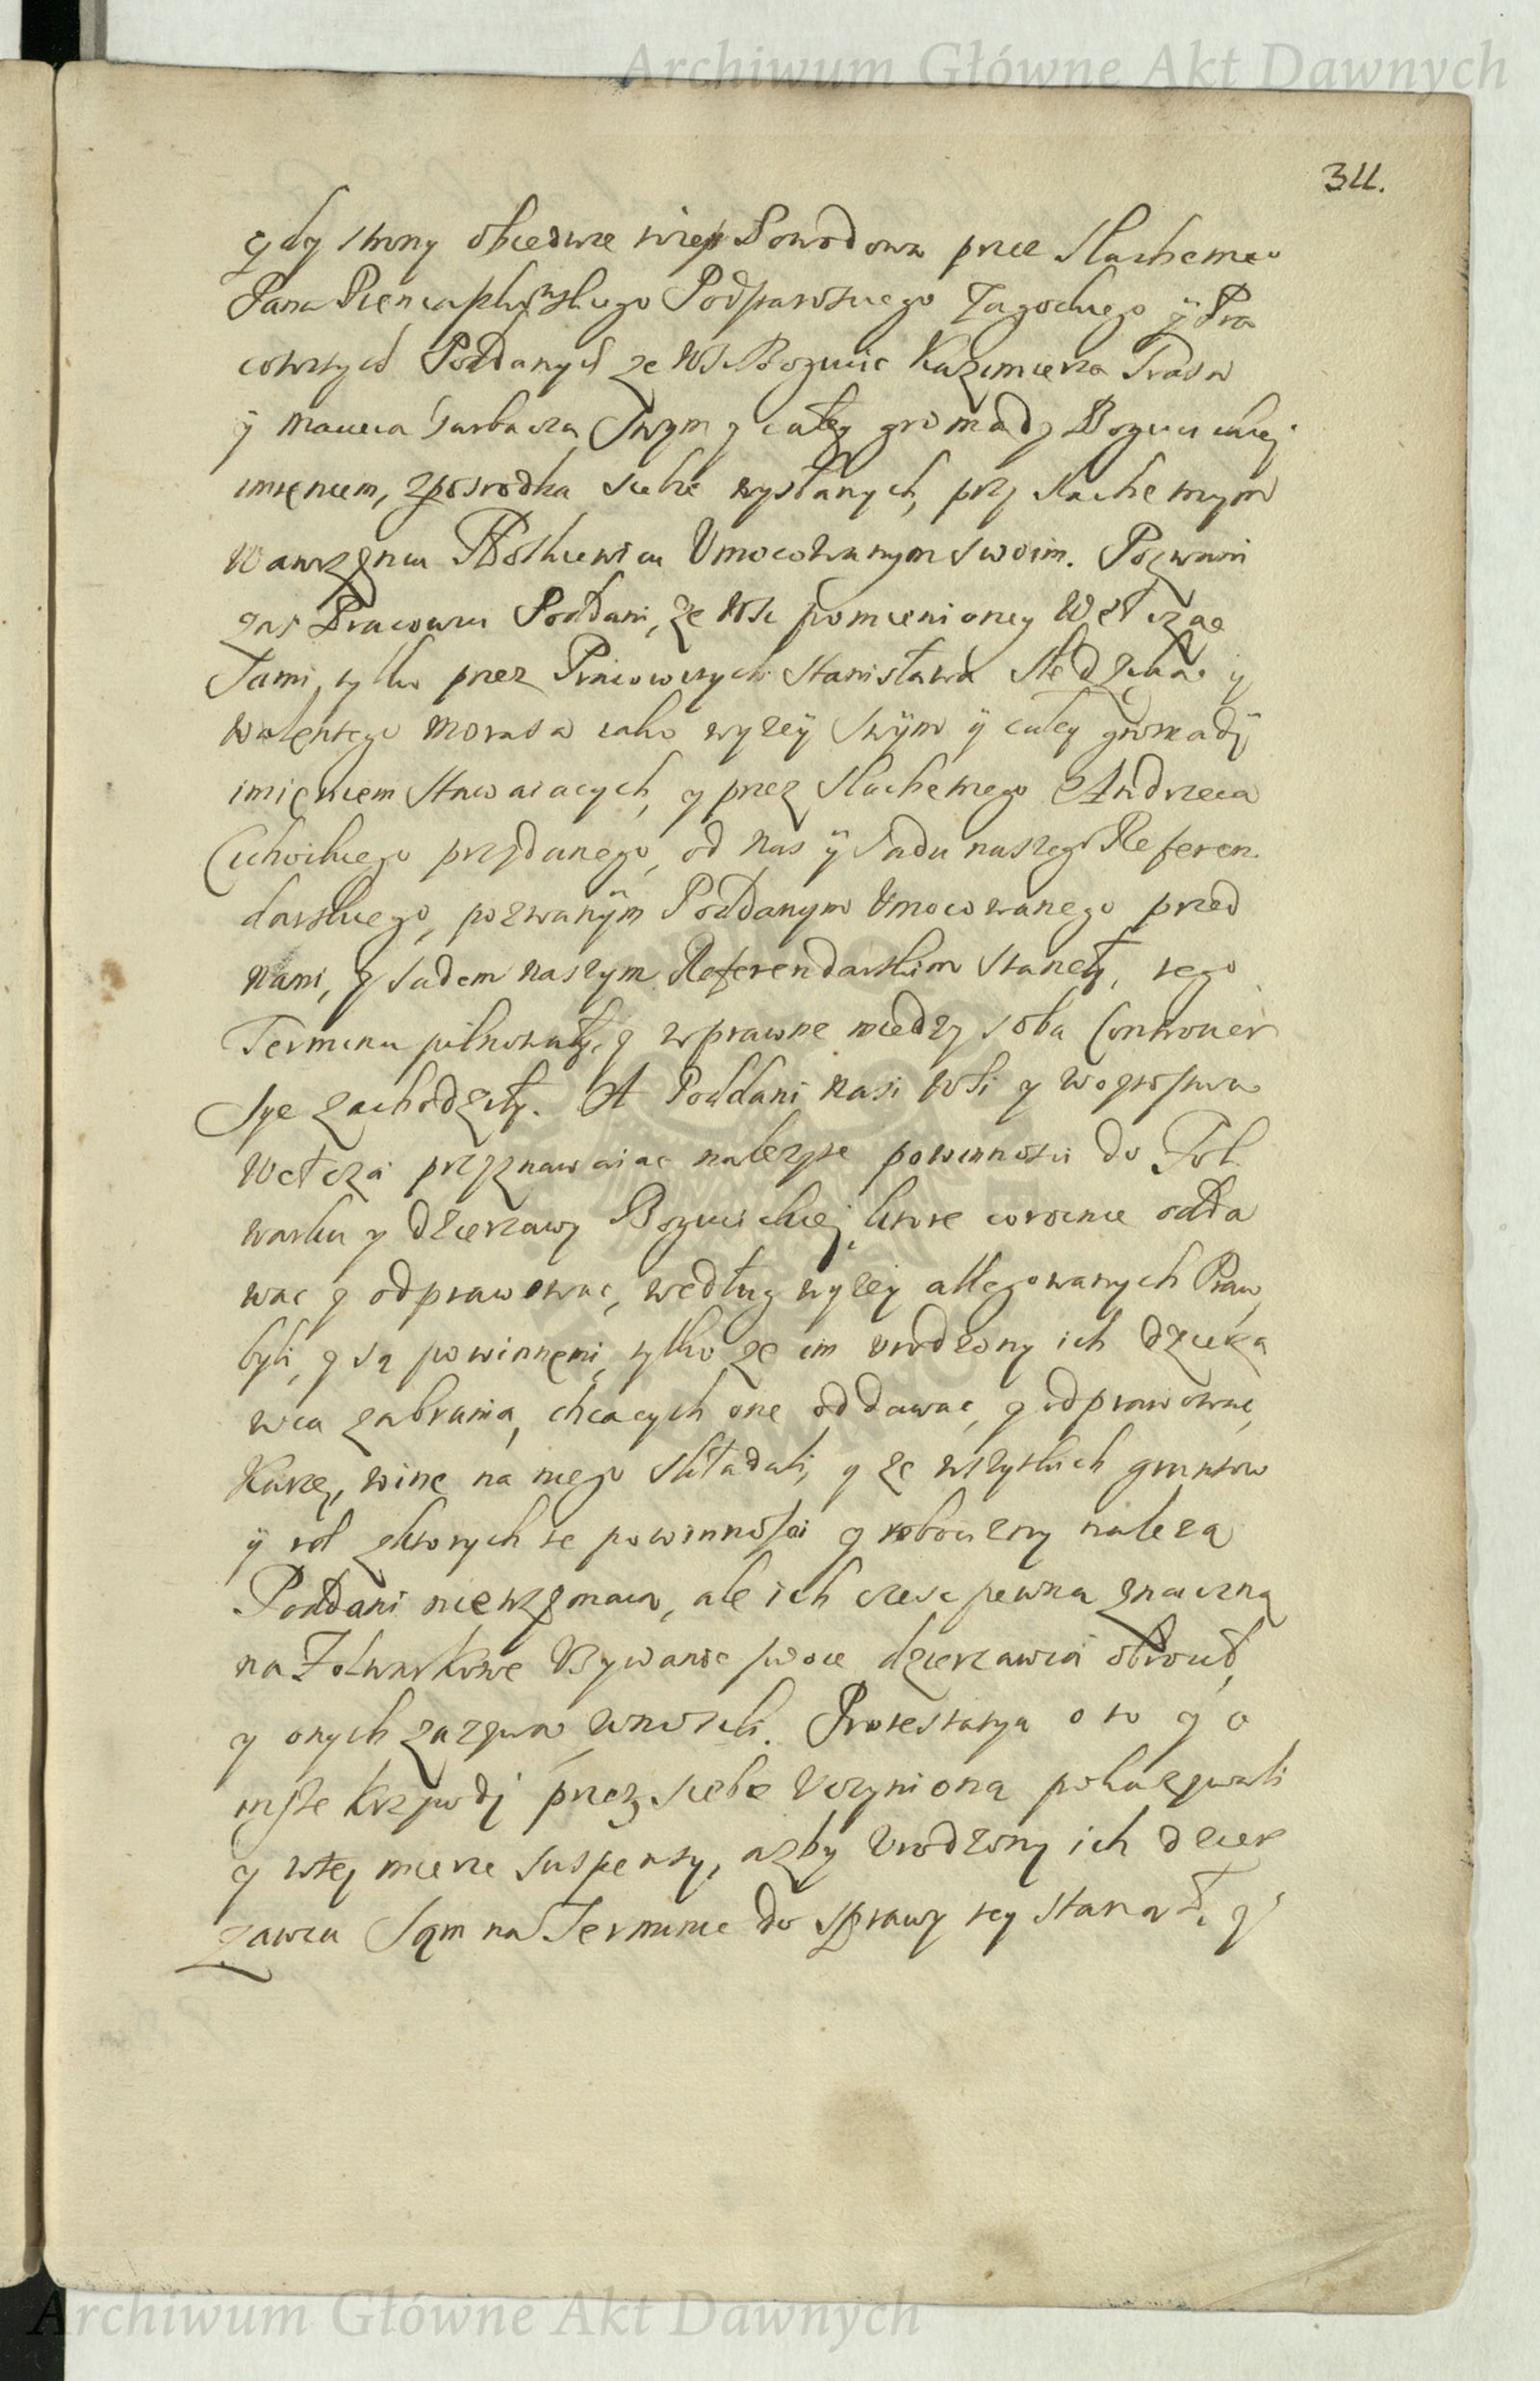 Archiwum Główne Akt Dawnych
311.
gdy strony obiedwie to iest Powodowa przez Slachetne
Pana Podstarosciego y Pra
cowitych Poddanych ze Wsi Bozucic Kazimierza
y Macieia Garbacza Swym y całey gromady
imieniem, zposrodka siebie wysłanych, przy slachetnym
Wawrzencu Umocowanym swoim. Pozwani
zas Pracowici Poddani, ze Wsi pomienioney Wełcza
Sami, tylko przez Pracowitych Stanisława y
Walentego iako wyzey Swÿm ÿ całey gromadÿ
imieniem Stawaiacych, y przez Slachetnego Andrzeia
Cichockiego przydanego, od Nas ÿ Sadu naszego Referen
darskiego, pozwanÿm Poddanym Umocowanego przed
Nami, y Sadem naszym Referendarskim staneły, tego
Terminu pilnowały, y wprawne miedzy soba Contrower
sye zachodziły. A Poddani Nasi Wsi y Woytostwa
Wełcza przyznawaiac nalezyte powinnosci do Fol
warku y dzierzawy ktore corocznie odda
wac y odprawowac, według wyzey allegowanych Praw
byli, y są powinnemi, tylko ze im urodzony ich dzierza
wca zabrania, chcacych one oddawac, y odprawowac,
Karze, winę na niego składali, y ze wszytkich gruntow
ÿ rol zktorych te powinnosci y robocizny naleza
Poddani nie trzymaia, ale ich czesc pewna znaczną
na Folwarkowe Uzywanie swoie dzierzawca obrocił,
y onych zazywa wnosili. Protestacya o to y o
insze krzywdy przez siebie Uczyniona pokazywali
y wtey mierze suspensy, azby Urodzony ich dzier
zawca Sąm na Terminie do sprawy tey stanął, y
Archiwum Główne Akt Dawnych